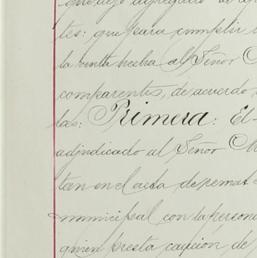 tes: que para cumplir
la venta hecha al Señor
comparentes, de acuerdo
las: Primera: El
adjudicado al Señor
tan en el acta de remat
municipal con la person
quien presta caución de